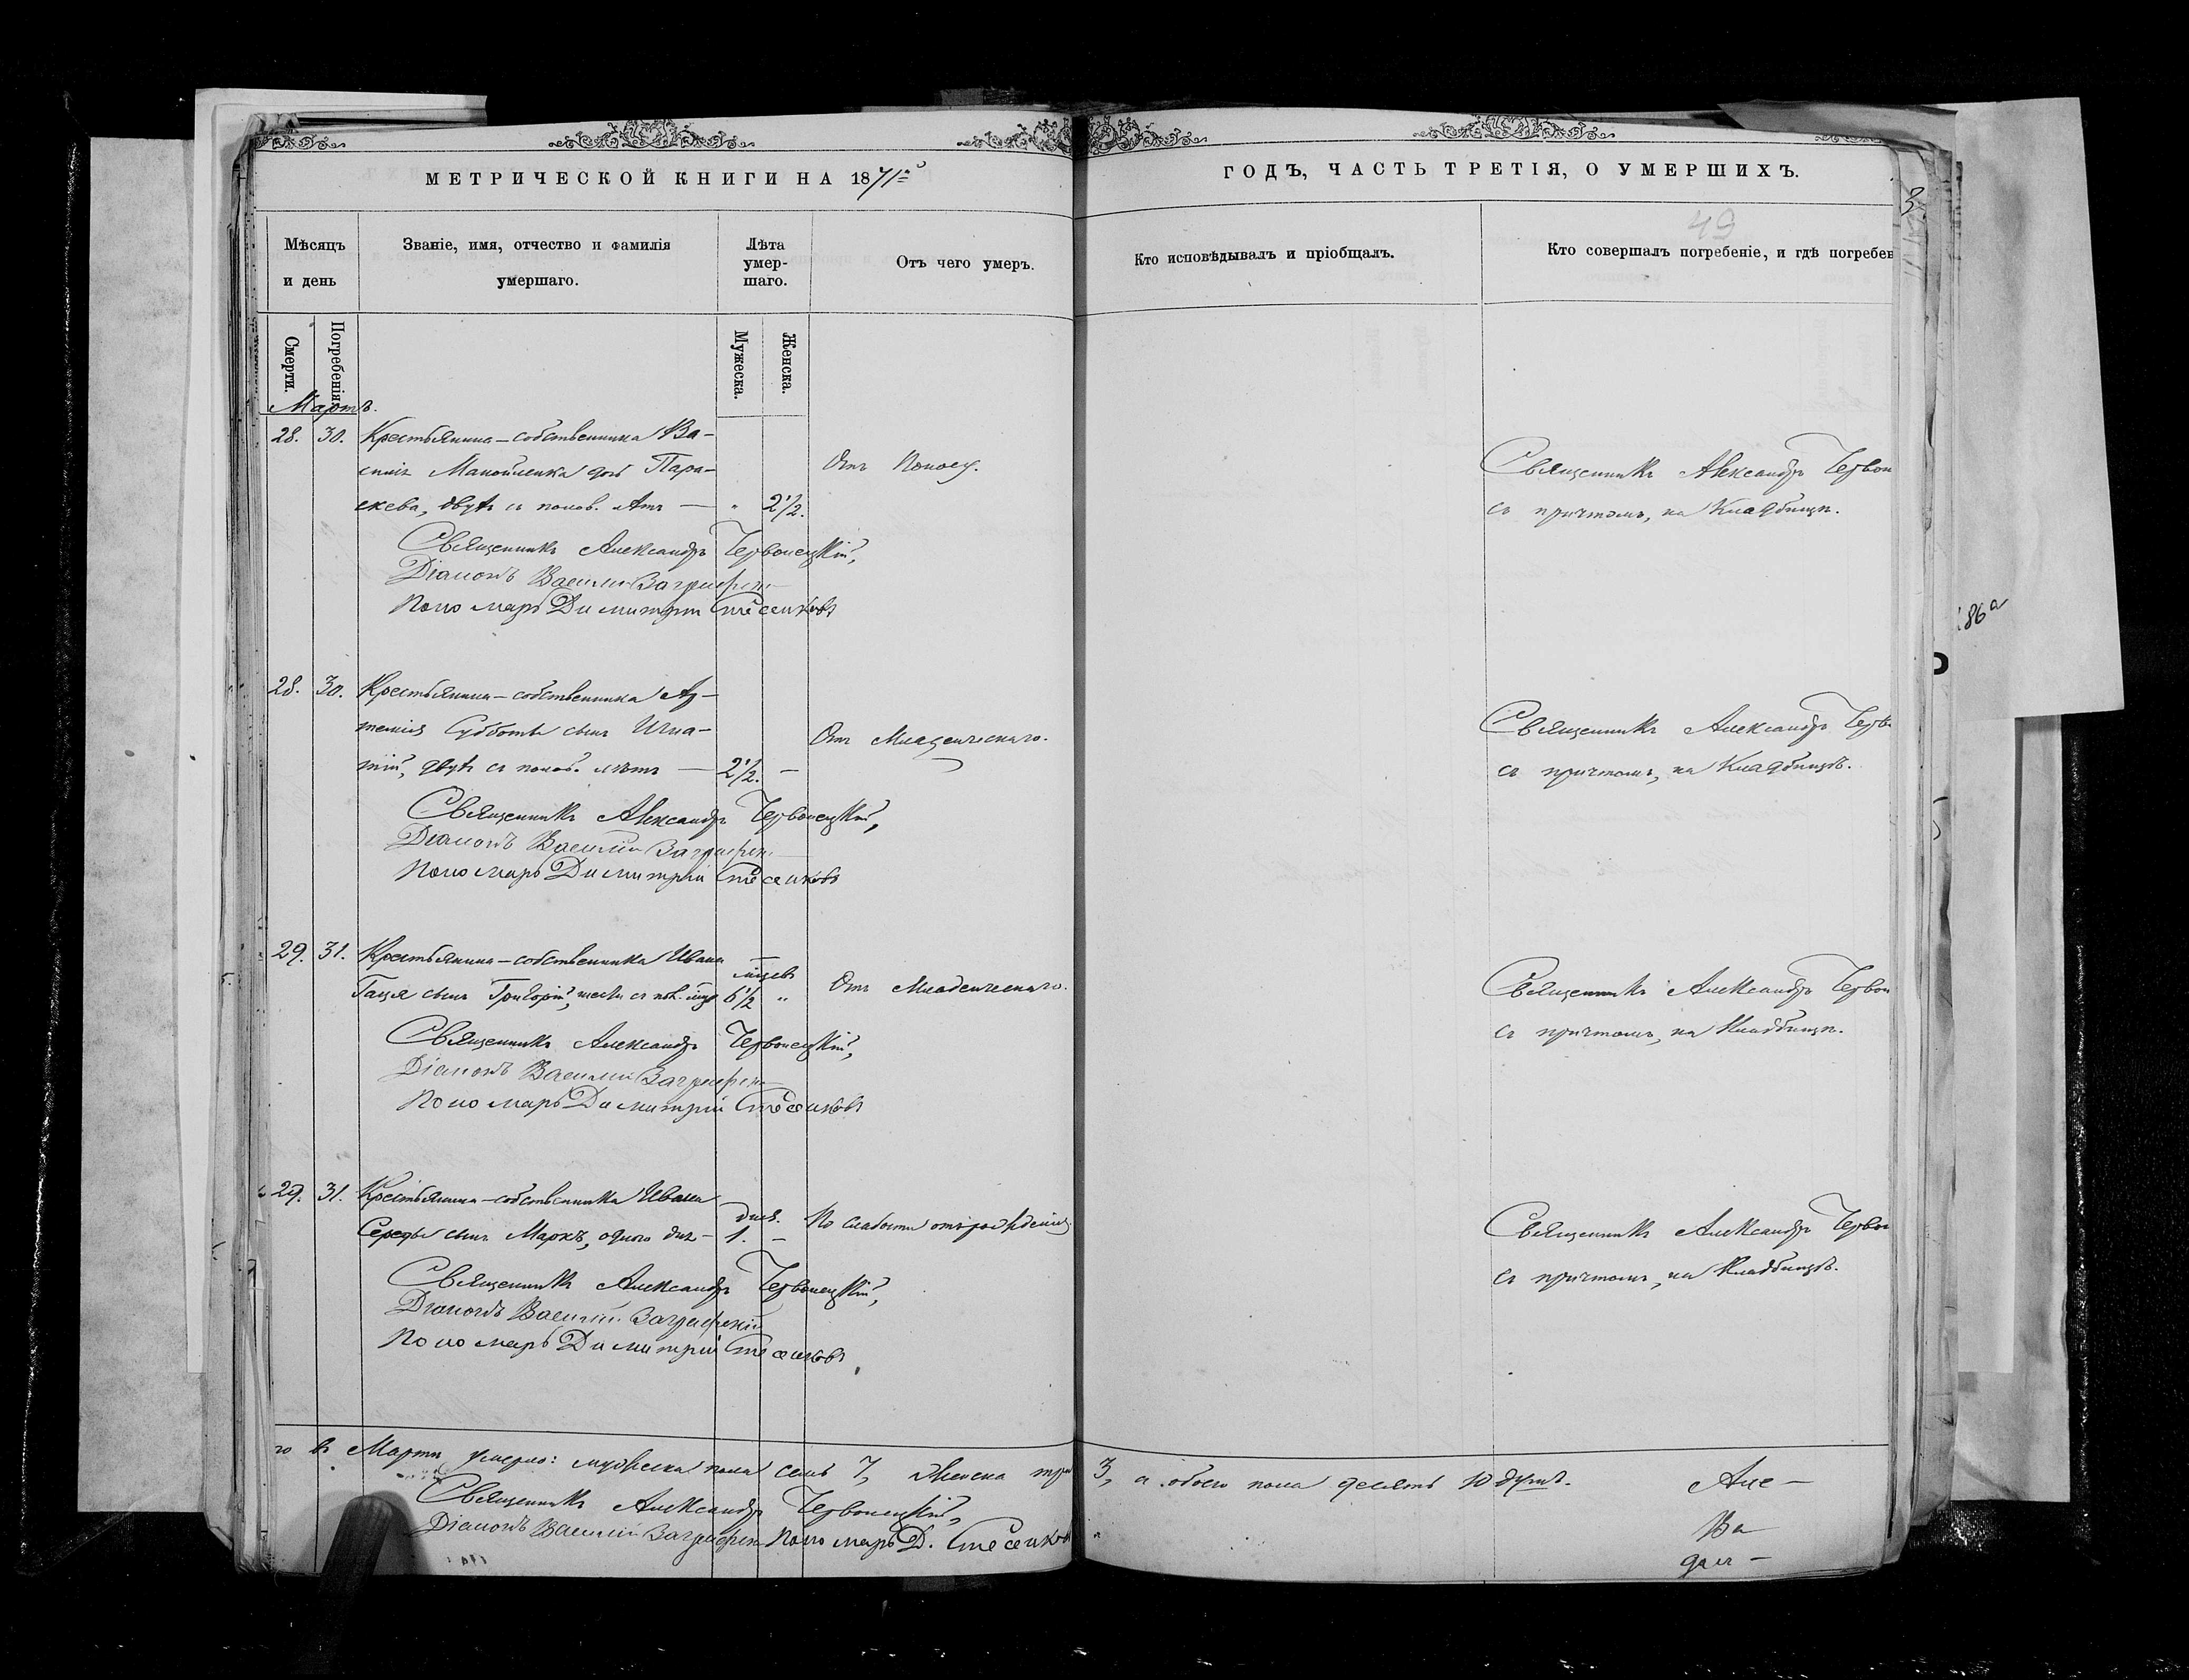 МЕТРИЧЕСКОЙ КНИГИ НА 1871й
ГОДЪ, ЧАСТЬ ТРЕТІЯ, О УМЕРШИХЪ.
3
49
Мѣсяцъ и день
Званіе, имя, отчество и фамилія умершаго.
Лѣта умер-шаго.
Отъ чего умеръ.
Кто исповѣдывалъ и пріобщалъ.
Кто совершалъ погребеніе, и гдѣ погребен
Смерти.
Погребенія.
Мужеска.
Женска.
Мартъ.
28. 30. Крестьянина-собственника Ва-
силія Манойленка дочь Пара-
скева, двухъ съ полов. лѣтъ — " 2½.
Отъ поносу.
Священникъ Александръ Червон
съ причтомъ, на кладбищѣ.
Священникъ Александръ Червонецкій,
Діаконъ Василій
Пономарь Димитрій
28. 30. Крестьянина-собственника Ар-
темія Субботы сынъ Игна-
тій, двухъ съ полов. лѣтъ — 2½. —
Отъ младенческаго.
Священникъ Александръ Черво
съ причтомъ, на кладбищѣ.
Священникъ Александръ Червонецкій,
Діаконъ Василій
Пономарь Димитрій
29. 31. Крестьянина-собственника Ивана
сынъ Григорій, шести съ пол. мцъ
мцевъ
6½ "
Отъ младенческаго.
Священникъ Александръ Червон
съ причтомъ, на кладбищѣ.
Священникъ Александръ Червонецкій,
Діаконъ Василій
Пономарь Димитрій
29. 31. Крестьянина-собственника Ивана
Середы сынъ Маркъ, одного дня —
дня.
1. —
По слабости отъ рожденія.
Священникъ Александръ Червон
съ причтомъ, на кладбищѣ.
Священникъ Александръ Червонецкій,
Діаконъ Василій
Пономарь Димитрій
го въ Мартѣ умерло: мужеска пола семь 7, женска три 3, а обоего пола десять 10 душъ.
Священникъ Александръ Червонецкій,
Діаконъ Василій
Пономарь Д.
Але-
Ва
дал-
86а